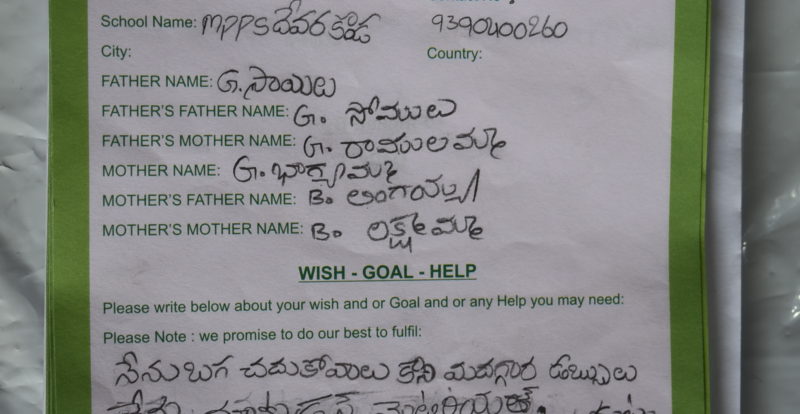 School Name: MPPS దేవరకొండ 9390400260
City: Country:
FATHER NAME: G. సాయిలు
FATHER'S FATHER NAME: G. సోములు
FATHER'S MOTHER NAME: G. రాములమ్మ
MOTHER NAME: G. భాగ్యమ్మ
MOTHER'S FATHER NAME: B. లింగయ్య
MOTHER'S MOTHER NAME: B. లక్ష్మమ్మ
WISH - GOAL - HELP
Please write below about your wish and or Goal and or any Help you may need:
Please Note : we promise to do our best to fulfil:
నేను బగ చదుకోవాలు కని మదగ్గార డబ్బులు